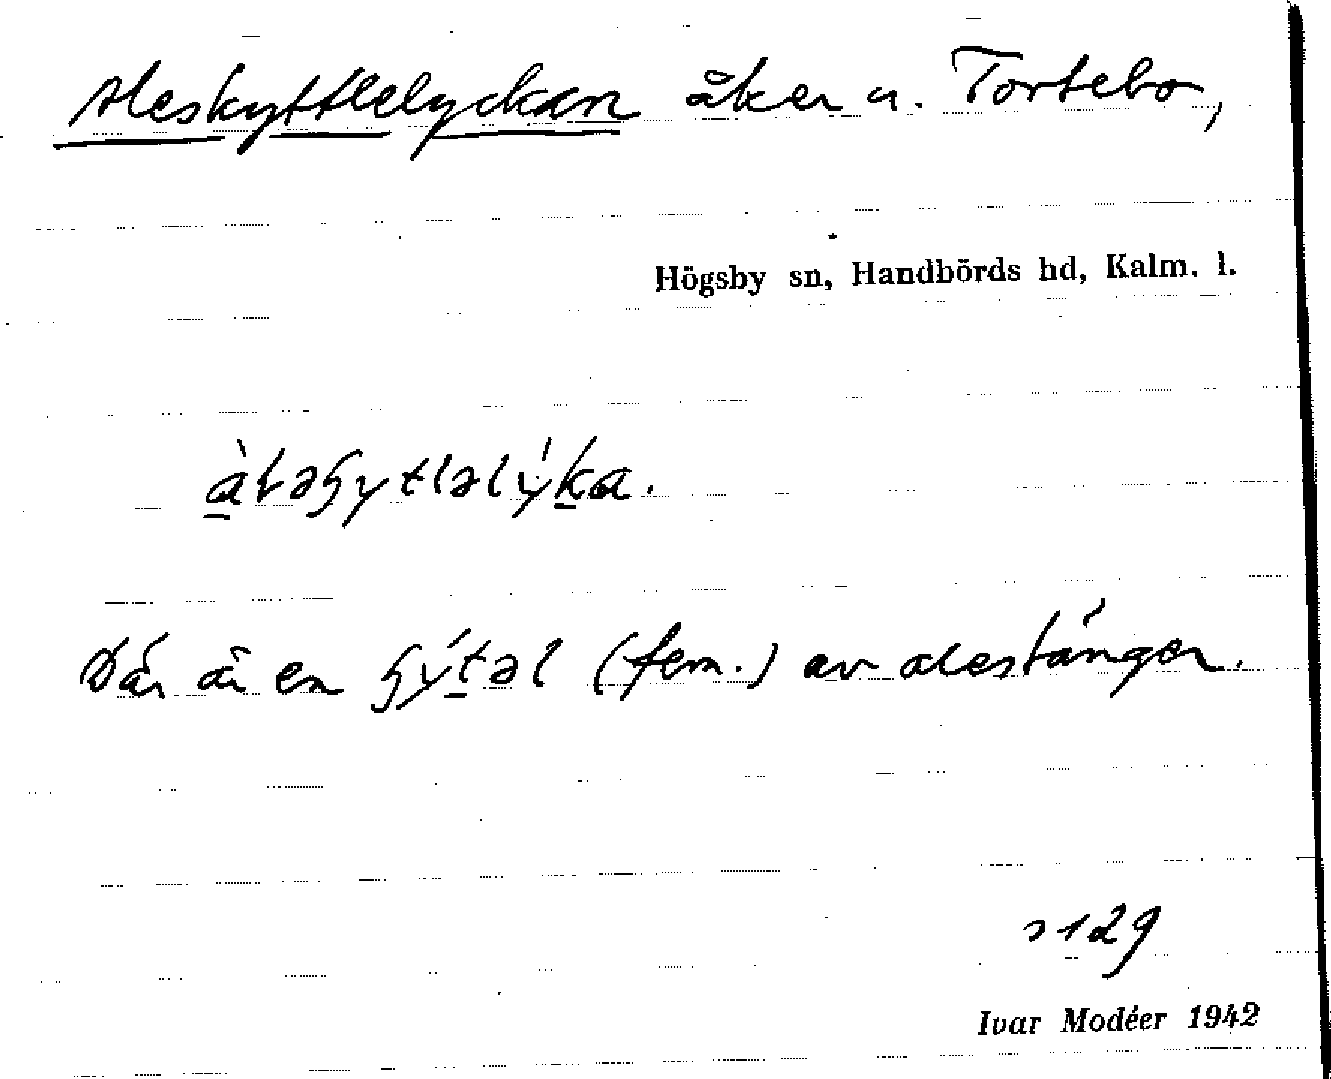 Aleskyttlelyckan åker u. Tortebo,
Högsby sn, Handbörds hd, Kalm. l.
Där är en (fem.) av alestänger.
s 129
Ivar Modéer 1942